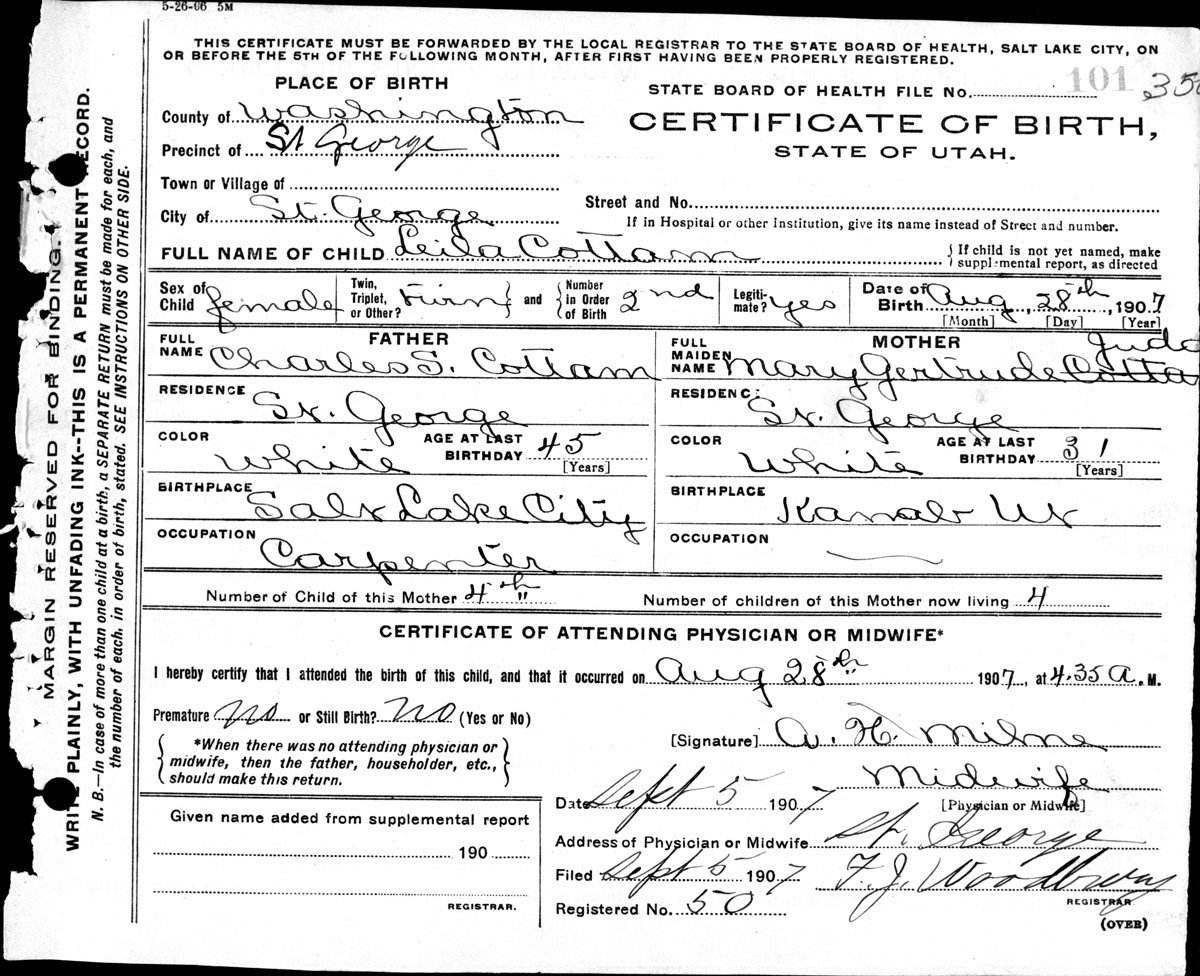 5-26-06 5M
THIS CERTIFICATE MUST BE FORWARDED BY THE LOCAL REGISTRAR TO THE STATE BOARD OF HEALTH, SALT LAKE CITY, ON
OR BEFORE THE 5TH OF THE FOLLOWING MONTH, AFTER FIRST HAVING BEEN PROPERLY REGISTERED.
PLACE OF BIRTH
STATE BOARD OF HEALTH FILE No. 101 350
County of Washington
CERTIFICATE OF BIRTH,
STATE OF UTAH.
Precinct of St George
Town or Village of
City of St. George
Street and No.
If in Hospital or other Institution, give its name instead of Street and number.
FULL NAME OF CHILD Leila Cottam
{If child is not yet named, make
supplemental report, as directed
Sex of Child female
Twin, Triplet, or Other? Twin } and { Number in Order of Birth 2nd
Legitimate? yes
Date of Birth Aug 28th, 1907
[Month] [Day] [Year]
FATHER
FULL NAME Charles S. Cottam
RESIDENCE St. George
COLOR White
AGE AT LAST BIRTHDAY 45
[Years]
BIRTHPLACE Salt Lake City
OCCUPATION Carpenter
MOTHER
FULL MAIDEN NAME Mary Gertrude Cotta Judd
RESIDENCE St. George
COLOR White
AGE AT LAST BIRTHDAY 31
[Years]
BIRTHPLACE Kanab Ut
OCCUPATION
Number of Child of this Mother 4th
Number of children of this Mother now living 4
CERTIFICATE OF ATTENDING PHYSICIAN OR MIDWIFE*
I hereby certify that I attended the birth of this child, and that it occurred on Aug 28th 1907, at 4.35 A. M.
Premature no or Still Birth? no (Yes or No)
{ *When there was no attending physician or
midwife, then the father, householder, etc.,
should make this return. }
[Signature] A. H. Milne
Midwife
[Physician or Midwife]
Date Sept 5 1907
Address of Physician or Midwife St. George
Filed Sept 5 1907 F. J. Woodbury
REGISTRAR
Registered No. 50
(OVER)
Given name added from supplemental report
190
REGISTRAR.
MARGIN RESERVED FOR BINDING.
WRITE PLAINLY, WITH UNFADING INK--THIS IS A PERMANENT RECORD.
N. B.—In case of more than one child at a birth, a SEPARATE RETURN must be made for each, and
the number of each, in order of birth, stated. SEE INSTRUCTIONS ON OTHER SIDE.